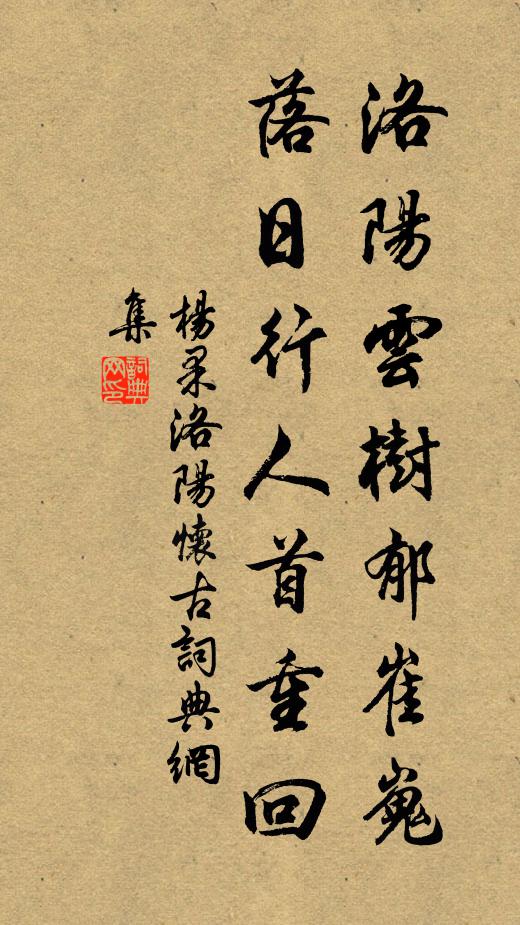 洛陽雲樹郁崔嵬
落日行人首重回
楊果洛陽懷古詞典網
集
詞典
网印